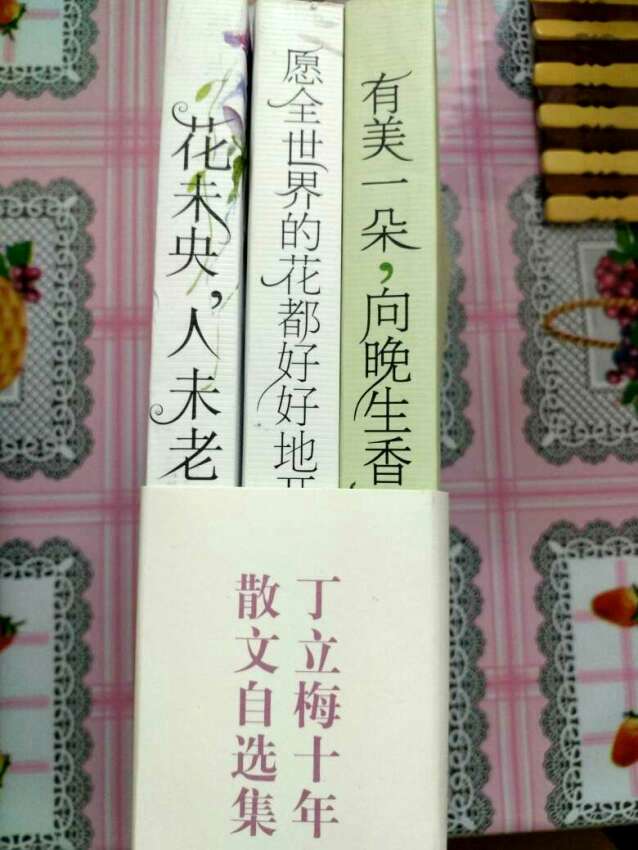 花未央，人未老
愿全世界的花都好好地
有美一朵，向晚生香
丁立梅十年
散文自选集